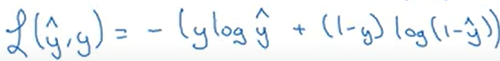 ℒ(ŷ,y) = - (y log ŷ + (1-y) log(1-ŷ))